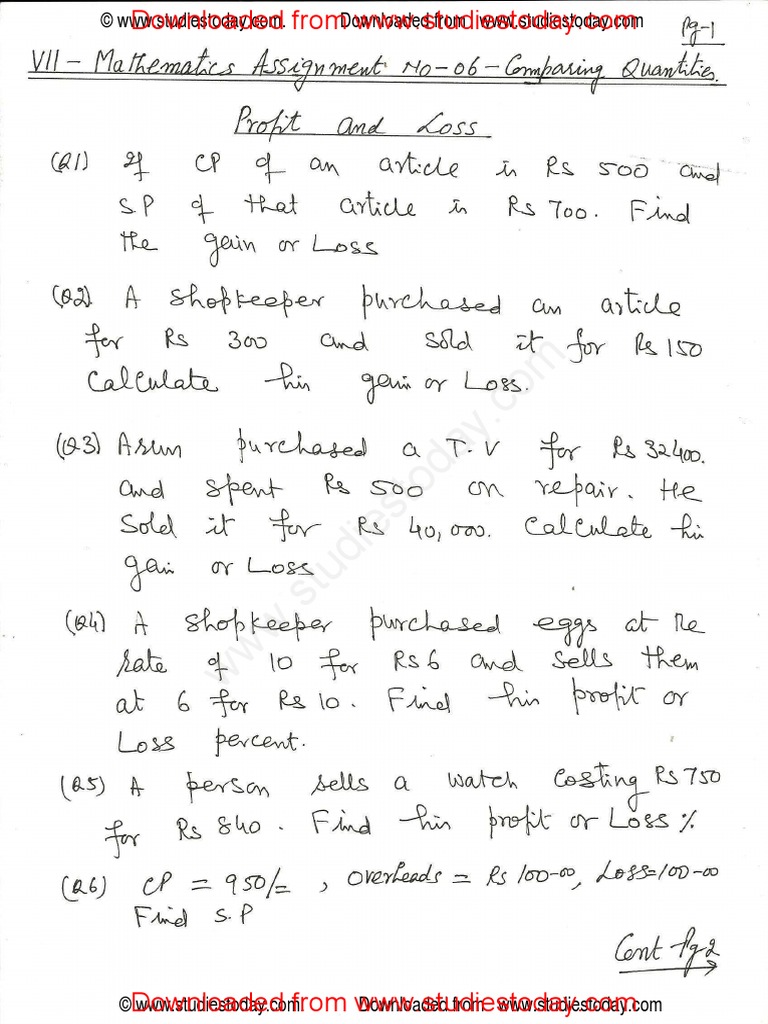 © www.studiestoday.com. Downloaded from www.studiestoday.com
Downloaded from www.studiestoday.com
Pg-1
VII - Mathematics Assignment No-06-Comparing Quantities.
Profit and Loss
(Q1) If CP of an article is Rs 500 and
S.P of that article is Rs 700. Find
the gain or Loss
(Q2) A shopkeeper purchased an article
for Rs 300 and sold it for Rs 150
Calculate his gain or Loss.
(Q3) Arun purchased a T.V for Rs 32400.
and spent Rs 500 on repair. He
Sold it for Rs 40,000. Calculate his
gain or Loss
(Q4) A shopkeeper purchased eggs at the
rate of 10 for Rs 6 and sells them
at 6 for Rs 10. Find his profit or
Loss percent.
(Q5) A person sells a watch costing Rs 750
for Rs 840. Find his profit or Loss %
(Q6) CP = 950/=, Overheads = Rs 100-00, Loss=100-00
Find S.P
Cont Pg2
www.studiestoday.com
© www.studiestoday.com. Downloaded from www.studiestoday.com
Downloaded from www.studiestoday.com